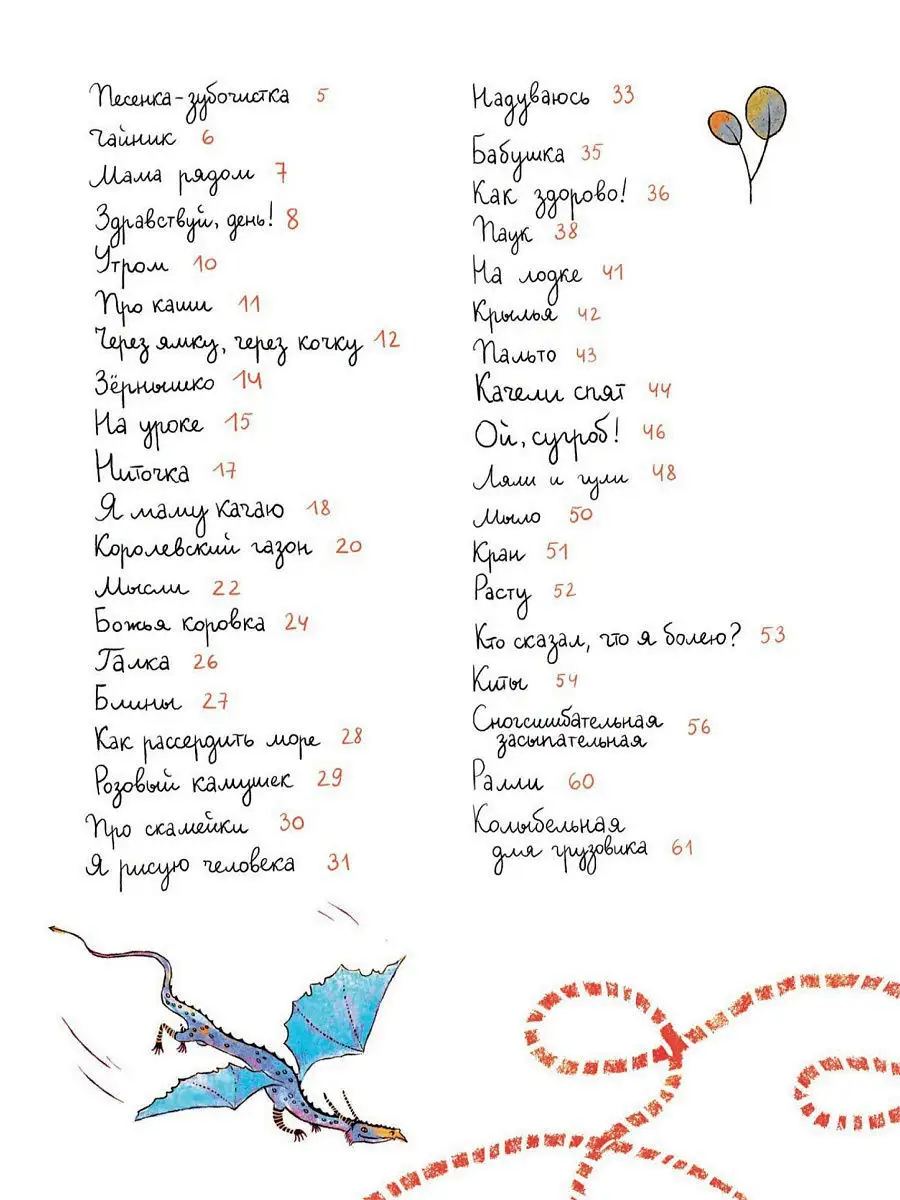 Песенка-зубочистка 5
Чайник 6
Мама рядом 7
Здравствуй, день! 8
Утром 10
Про каши 11
Через ямку, через кочку 12
Зёрнышко 14
На уроке 15
Ниточка 17
Я маму качаю 18
Королевский газон 20
Мысли 22
Божья коровка 24
Галка 26
Блины 27
Как рассердить море 28
Розовый камушек 29
Про скамейки 30
Я рисую человека 31
Надуваюсь 33
Бабушка 35
Как здорово! 36
Паук 38
На лодке 41
Крылья 42
Пальто 43
Качели спят 44
Ой, сугроб! 46
Ляли и гули 48
Мыло 50
Кран 51
Расту 52
Кто сказал, что я болею? 53
Киты 54
Сногсшибательная
засыпательная 56
Ралли 60
Колыбельная
для грузовика 61